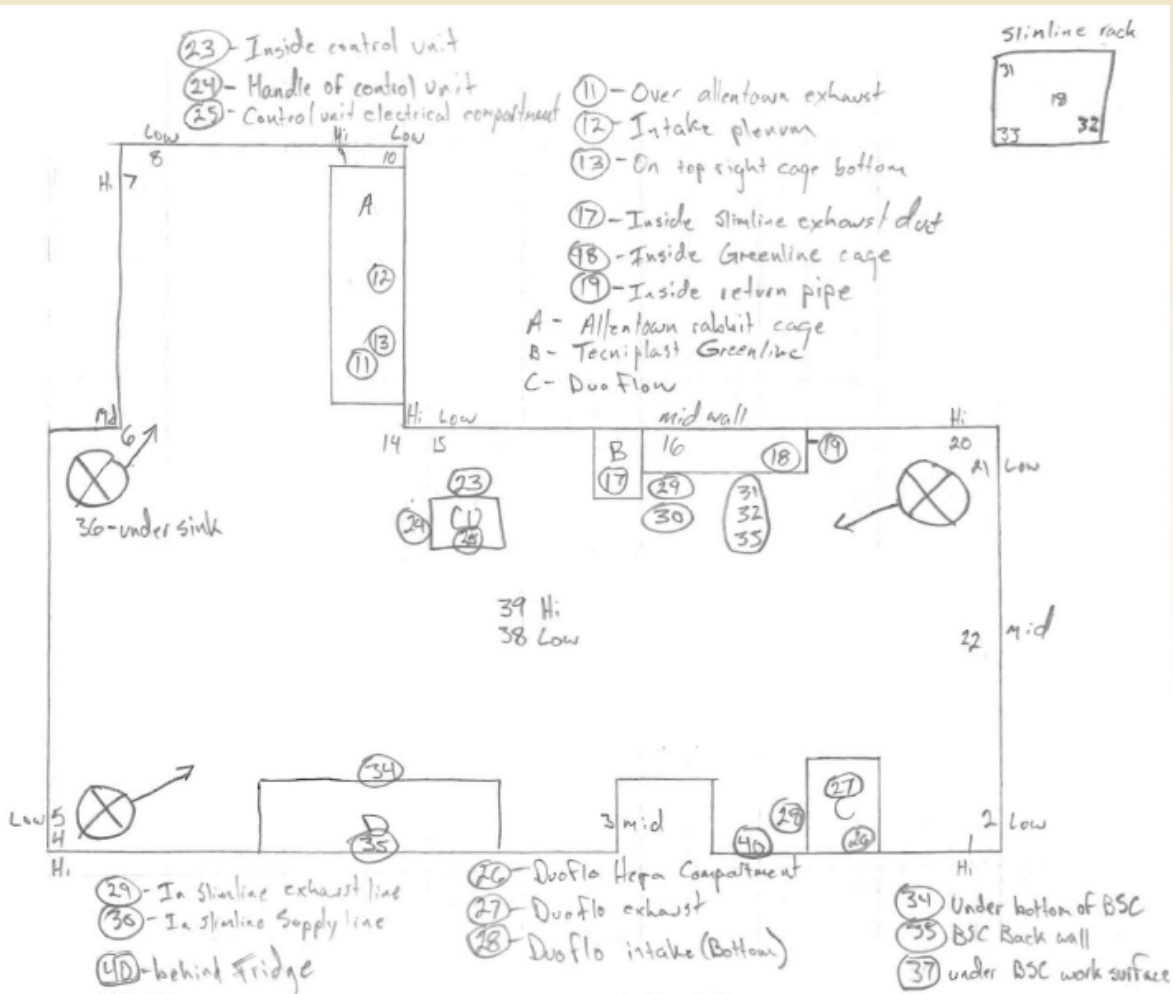 23 - Inside control unit
24 - Handle of control unit
25 - Control unit electrical compartment
11 - Over allentown exhaust
12 - Intake plenum
13 - On top right cage bottom
17 - Inside Slimline exhaust duct
18 - Inside Greenline cage
19 - Inside return pipe
A - Allentown rabbit cage
B - Tecniplast Greenline
C - Duo Flow
Slimline rack
31
18
33 32
Low
8
Hi 7
Hi
9
Low
10
A
12
13
11
Md
6
36 - under sink
Hi Low
14 15
mid wall
B
17
16
18
19
29
30
31
32
35
Hi
20
21 Low
23
24
CU
25
39 Hi
38 Low
22 mid
Low 5
4
Hi
34
D
35
3 mid
40
29
27
C
26
2 Low
1
Hi
29 - In Slimline exhaust line
30 - In slimline Supply line
40 - behind Fridge
26 - DuoFlo Hepa Compartment
27 - DuoFlo exhaust
28 - Duoflo intake (Bottom)
34 Under bottom of BSC
35 BSC Back wall
37 under BSC work surface